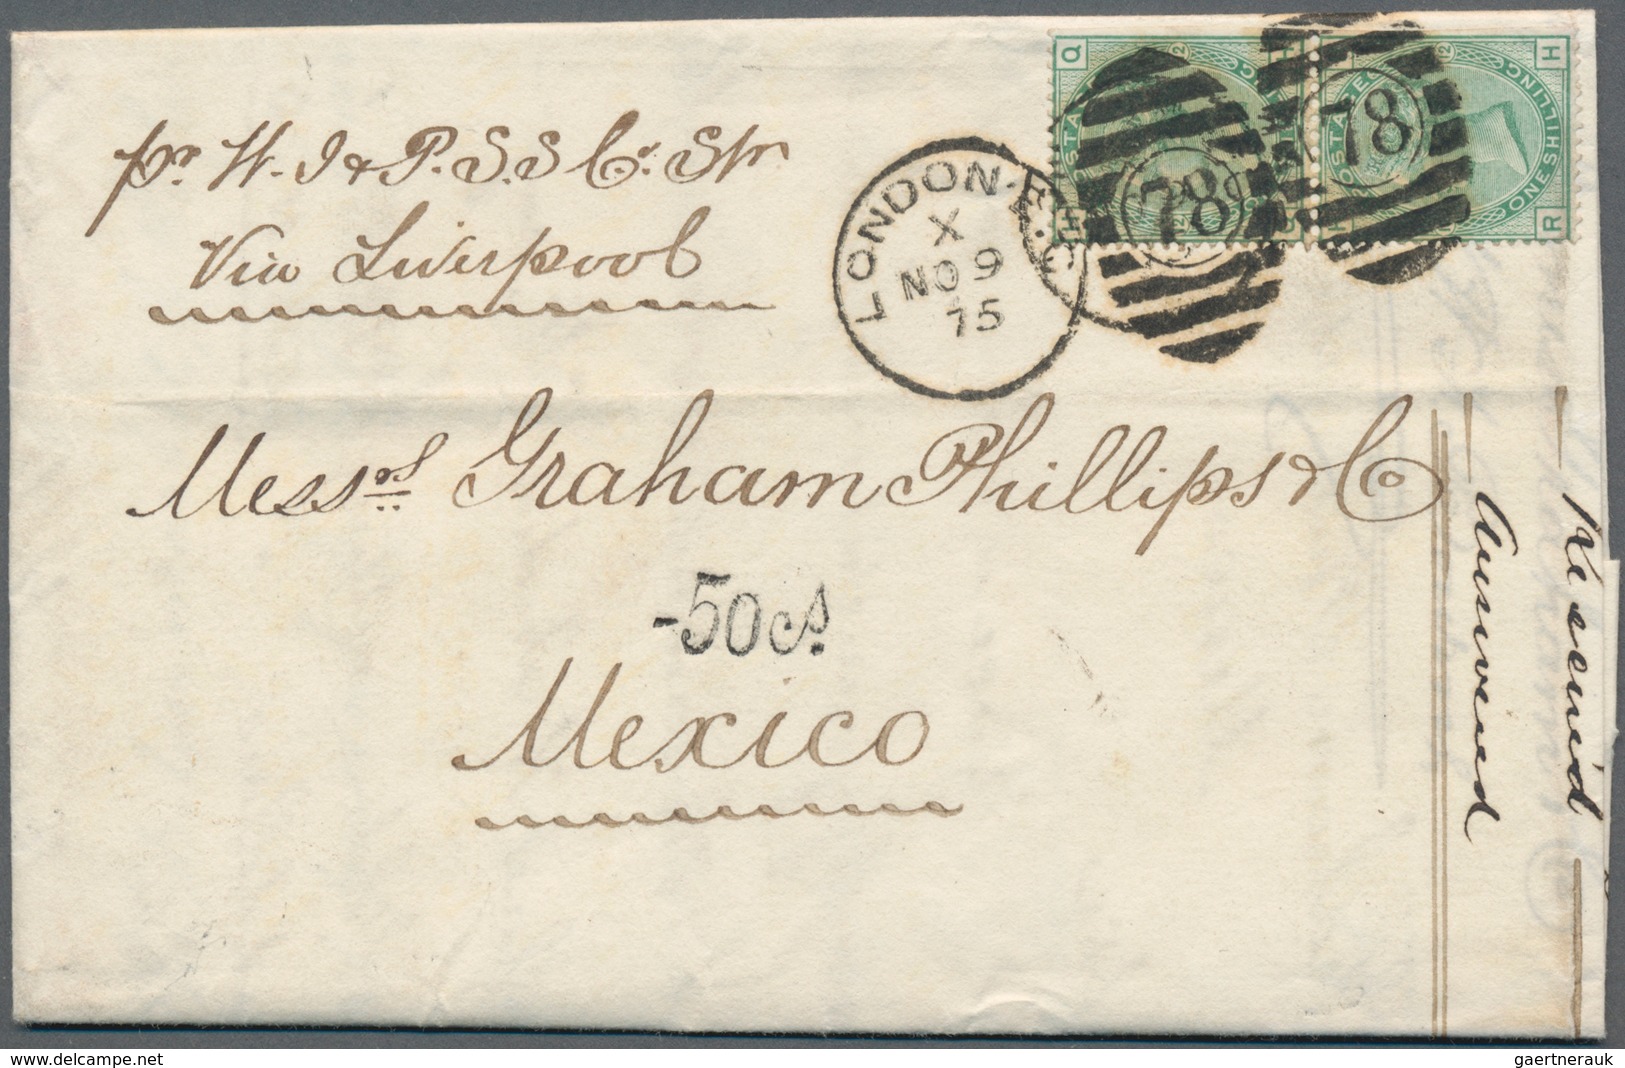 pr. W. I & P. S. S Co. Str.
Via Liverpool
LONDON·E.C
X
NO 9
75
78
78
Q
H
H
R
ONE SHILLING
Messrs Graham Phillips & Co
-50cs.
Mexico
Received
Answered
gaertnerauk